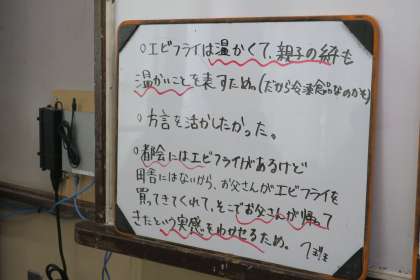 ○エビフライは温かくて、親子の絆も
温かいことを表すため。(だから冷凍食品なのかも)
○方言を活かしたかった。
○都会にはエビフライがあるけど
田舎にはないから、お父さんがエビフライを
買ってきてくれて、そこでお父さんが帰って
きたという実感をわかせるため。